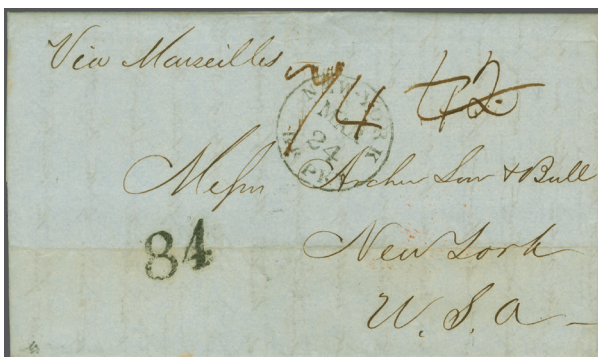 Via Marseilles
1/4
NEW-YORK
MAR
24
AM. PKT
Messrs Archer Low & Bull
84
New York
U. S. A